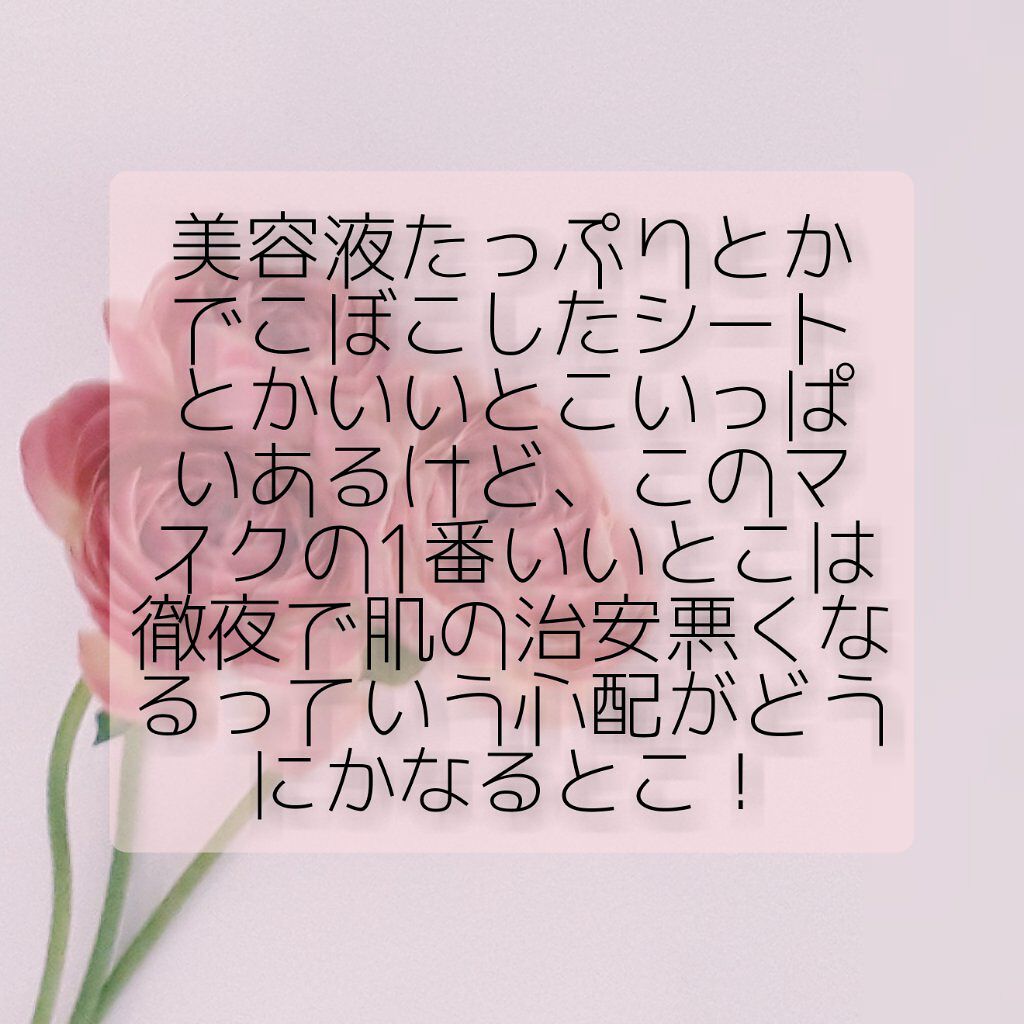 美容液たっぷりとか
でこぼこしたシート
とかいいとこいっぱ
いあるけど、このマ
スクの1番いいとこは
徹夜で肌の治安悪くな
るっていう心配がどう
にかなるとこ！